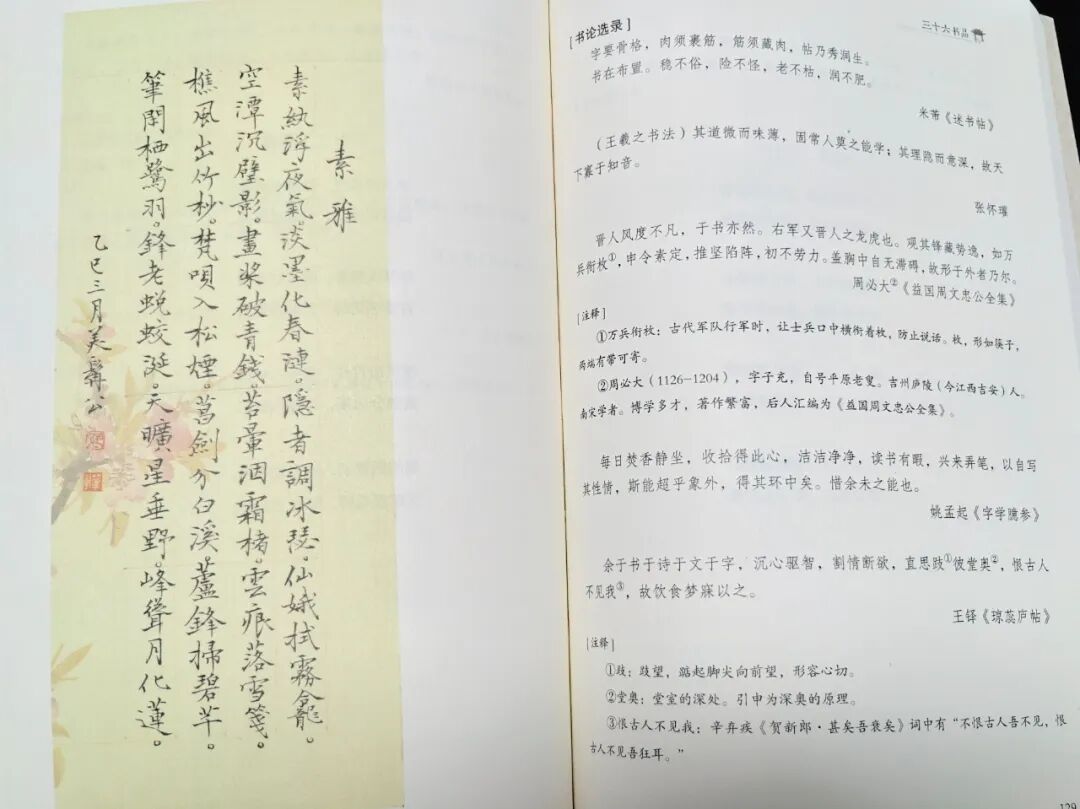 素雅
素紈浮夜氣。淡墨化春漣。隱者調冰瑟。仙娥拭霧奩。
空潭沉璧影。畫槳破青錢。苔暈洇霜楮。雲痕落雪箋。
樵風出竹杪。梵唄入松煙。菖劍分白溪。蘆鋒掃碧芊。
筆閑栖鷺羽。鋒老蛻蛟涎。天曠星垂野。峰聳月化蓮。
乙巳三月美髯公
三十六书品
[书论选录]
字要骨格，肉须裹筋，筋须藏肉，帖乃秀润生。
书在布置。稳不俗，险不怪，老不枯，润不肥。
米芾《述书帖》
（王羲之书法）其道微而味薄，固常人莫之能学；其理隐而意深，故天
下寡于知音。
张怀瓘
晋人风度不凡，于书亦然。右军又晋人之龙虎也。观其锋藏势逸，如万
兵衔枚①，令素定，推坚陷阵，初不劳力。盖胸中自无滞碍，故形于外者乃尔。
周必大②《益国周文忠公全集》
[注释]
①万兵衔枚：古代军队行军时，让士兵口中横衔着枚，防止说话。枚，形如筷子，
两端有带可寄。
②周必大（1126-1204），字子充，自号平原老叟。吉州庐陵（今江西吉安）人。
南宋学者。博学多才，著作繁富，后人汇编为《益国周文忠公全集》。
每日焚香静坐，收拾得此心，洁洁净净，读书有暇，兴来弄笔，以自写
其性情，斯能超乎象外，得其环中矣。惜余未之能也。
姚孟起《字学臆参》
余于书于诗于文于字，沉心驱智，割情断欲，直思跂①彼堂奥②，恨古人
不见我③，故饮食梦寐以之。
王铎《琼蕊庐帖》
[注释]
①跂：跂望，踮起脚尖向前望，形容心切。
②堂奥：堂室的深处。引申为深奥的原理。
③恨古人不见我：辛弃疾《贺新郎·甚矣吾衰矣》词中有“不恨古人吾不见，恨
古人不见吾狂耳。”